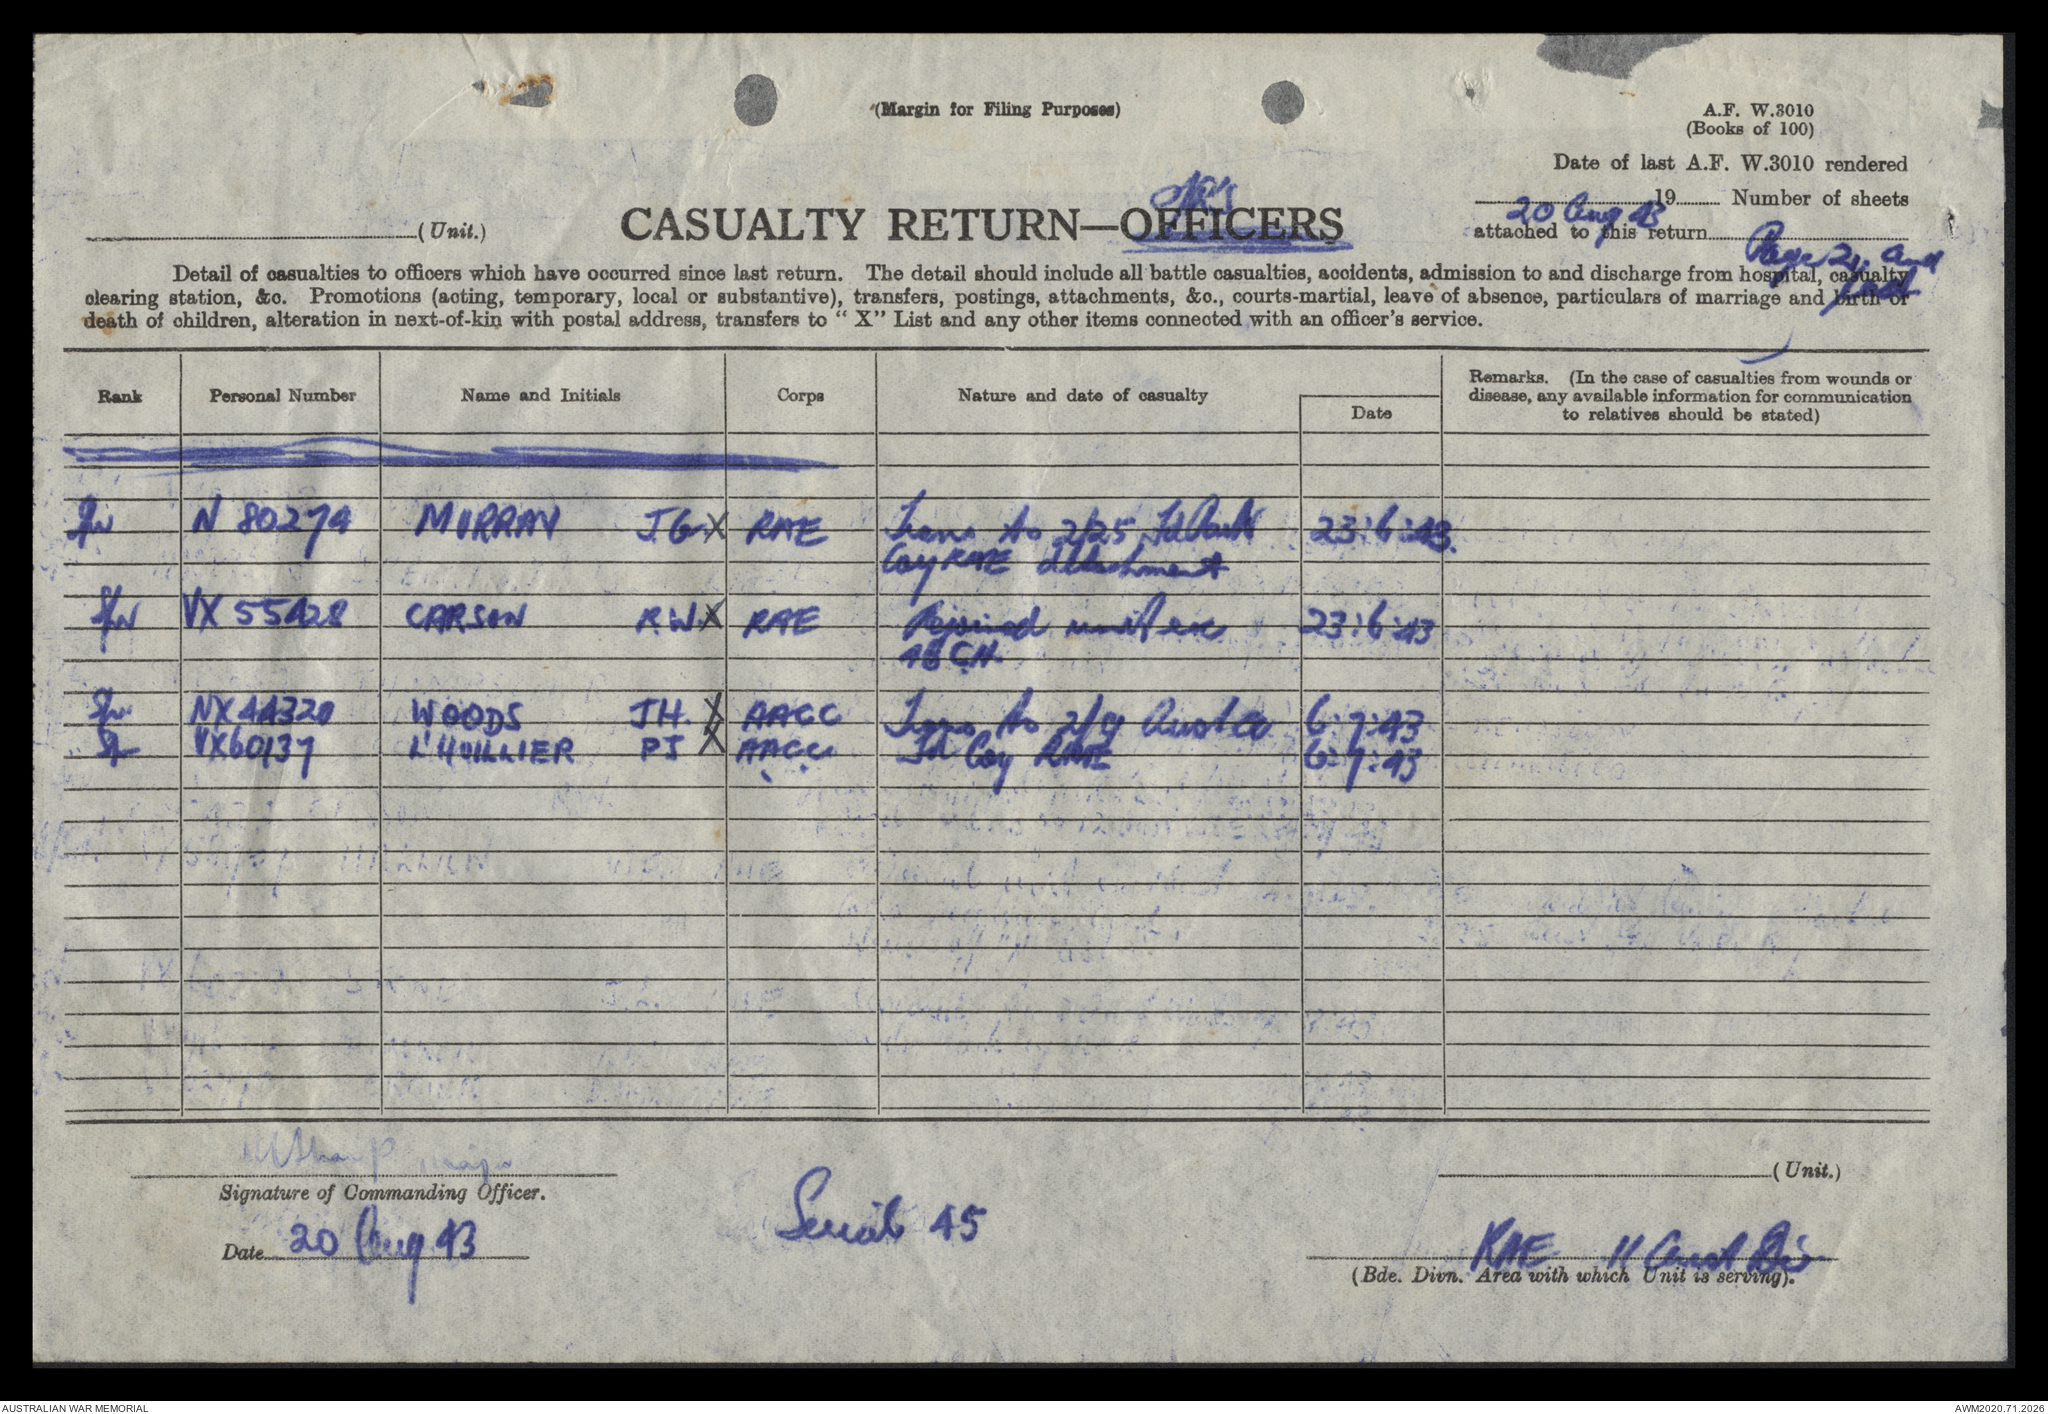 (Margin for Filing Purposes)
A.F. W.3010
(Books of 100)
Date of last A.F. W.3010 rendered
20 Aug 43 19 Number of sheets
attached to this return Page 2. and
last
(Unit.)
OR's
CASUALTY RETURN—OFFICERS
Detail of casualties to officers which have occurred since last return. The detail should include all battle casualties, accidents, admission to and discharge from hospital, casualty
clearing station, &c. Promotions (acting, temporary, local or substantive), transfers, postings, attachments, &c., courts-martial, leave of absence, particulars of marriage and birth or
death of children, alteration in next-of-kin with postal address, transfers to "X" List and any other items connected with an officer's service.
Rank Personal Number Name and Initials Corps Nature and date of casualty Date Remarks. (In the case of casualties from wounds or
disease, any available information for communication
to relatives should be stated)
Spr N 80274 MURRAY J.G. X RAE Trans to 2/25 Fd Park 23:6:43.
Coy RAE detachment
Spr VX 55428 CARSON R.W. X RAE Rejoined unit ex 23:6:43
48 CH.
Spr NX 44320 WOODS JH. X AACC Trans to 2/4 Aust 6:7:43
VX60137 L'HUILLIER PJ X AACC Fd Coy RAE 6:7:43
Major
Signature of Commanding Officer.
Date 20 Aug 43
Serial 45
(Unit.)
RAE 11 Aust Div
(Bde. Divn. Area with which Unit is serving).
AUSTRALIAN WAR MEMORIAL
AWM2020.71.2026